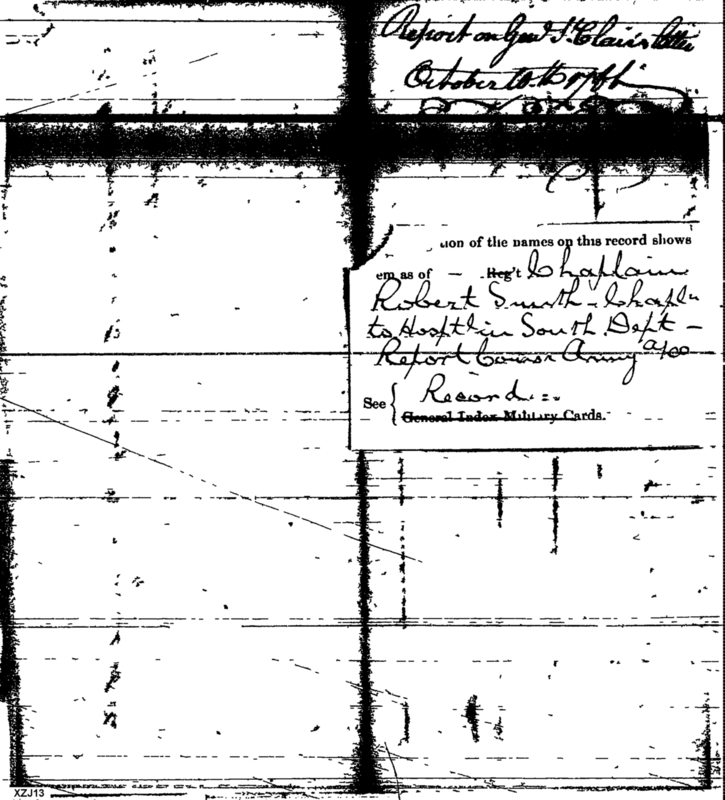 Report on Genl St. Clair's letter
October 10th
ion of the names on this record shows
em as of — Reg't Chaplain
Robert Smith - Chapln
to Hosptl in South Dept —
Report Comsr Army a/cs
See { Record
General Index Military Cards.
XZJ13